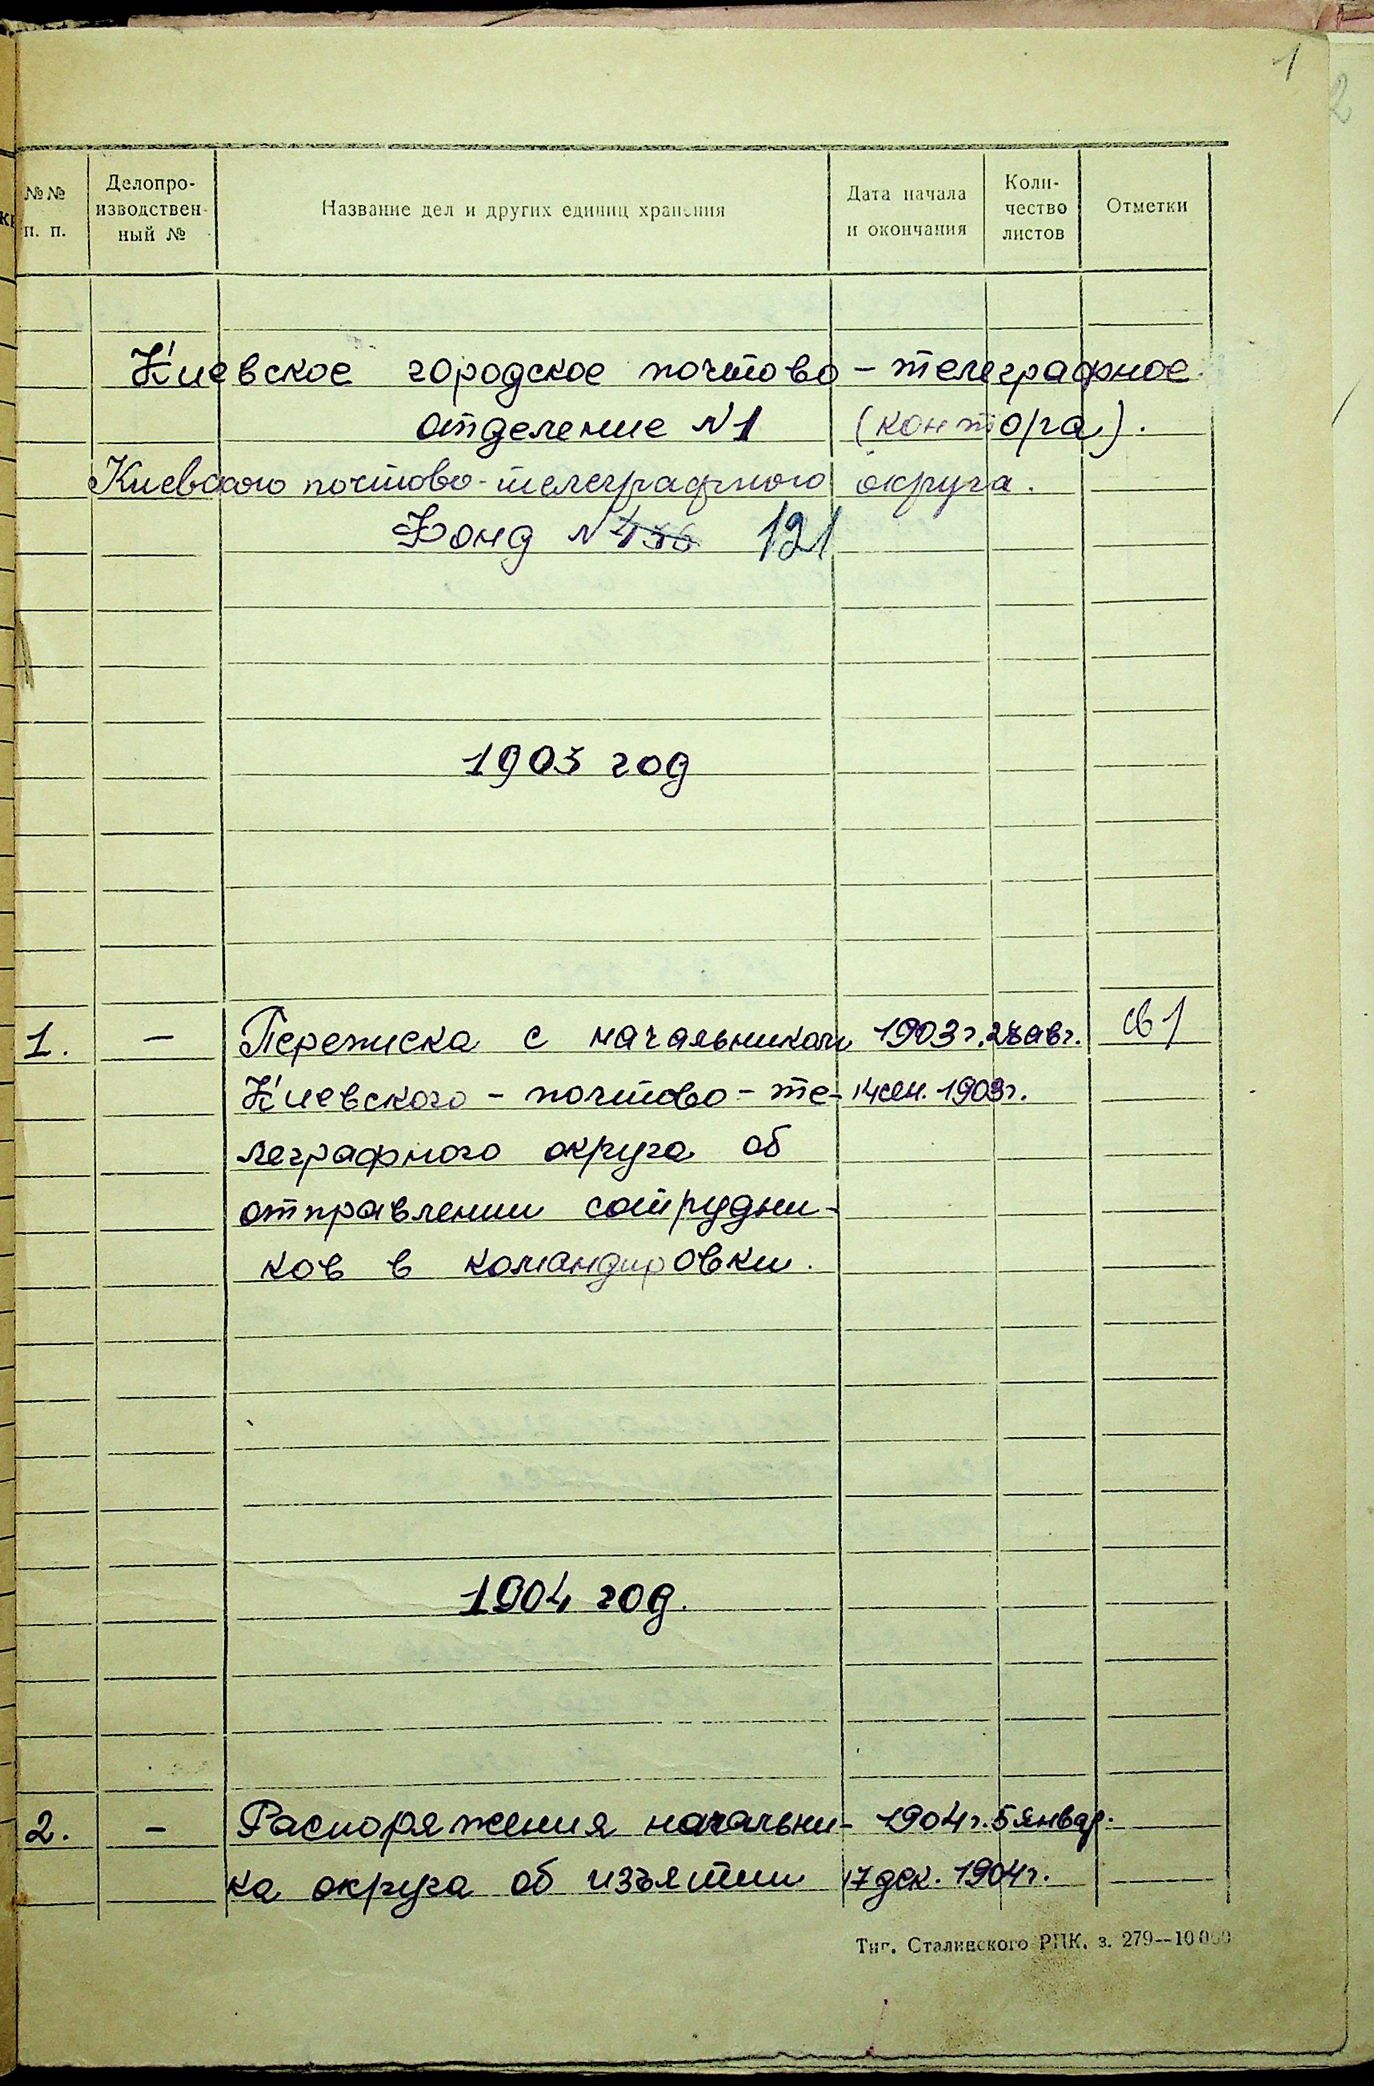 1
2
№№ п. п.
Делопро-изводствен-ный №
Название дел и других единиц хранения
Дата начала и окончания
Коли-чество листов
Отметки
Киевское городское почтово-телеграфное
отделение №1 (контора).
Киевского почтово-телеграфного округа.
Фонд № 121
1903 год
1. — Переписка с начальником 1903г. авг. св 1
Киевского-почтово-те- 14 сен. 1903г.
леграфного округа об
отправлении сотрудни-
ков в командировки.
1904 год.
2. — Распоряжения начальни- 1904г. 5 январ.
ка округа об изъятии 17 дек. 1904г.
Тип. Сталинского РПК. з. 279--10000